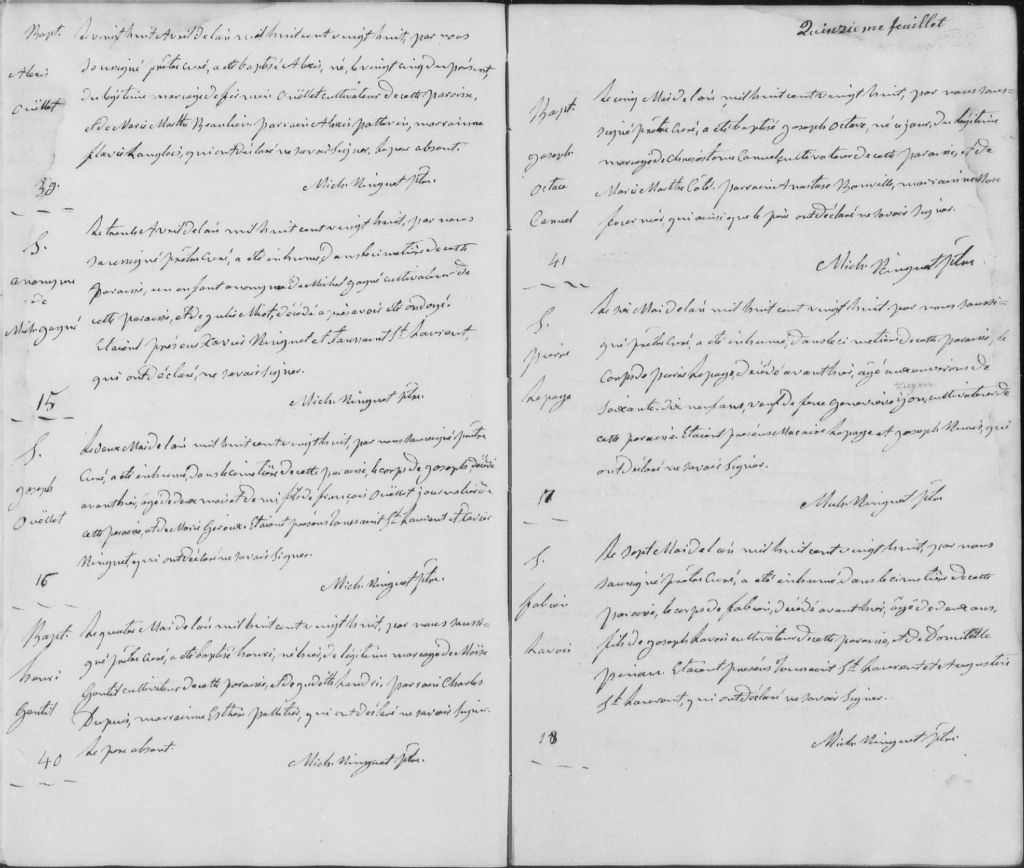 Bapt.
Alexis
Ouellet
39.
Le vingt huit Avril de l'an mil huit cent vingt huit, par nous
soussigné prêtre Curé, a été baptisé Alexis, né, le vingt cinq du présent,
du légitime mariage de Ouellet cultivateur de cette paroisse,
et de Marie Marthe Beaulieu. parrain Alexis marraine
flavie Langlois, qui ont déclaré ne savoir signer. Le père absent.
Mich. Ringuet ptre.
S.
anonyme
de
Mich. gagné
15
Le trente Avril de l'an mil huit cent vingt huit, par nous
soussigné prêtre Curé, a été inhumé, dans le cimetière de cette
paroisse, un enfant anonyme de Michel gagné cultivateur de
cette paroisse, et de julie décédé après avoir été ondoyé.
Etaient présens Xavier Ringuet et toussaint St. Laurent,
qui ont déclaré, ne savoir signer.
Mich. Ringuet ptre.
S.
joseph
Ouellet
16
Le deux Mai de l'an mil huit cent vingt huit, par nous soussigné prêtre
Curé, a été inhumé, dans le cimetière de cette paroisse, le corps de joseph décédé
avant hier, âgé de deux mois et demi fils de françois Ouëllet journalier de
cette paroisse, et de Marie Giroux. Etaient présens toussaint St. Laurent et Xavier
Ringuet, qui ont déclaré ne savoir signer.
Mich. Ringuet ptre.
Bapt.
henri
Gentil
40
Le quatre Mai de l'an mil huit cent vingt huit, par nous soussi-
gné prêtre Curé, a été baptisé henri, né hier, de légitime mariage de Moïse
Gentil cultivateur de cette paroisse, et de Landri. parrain Charles
Dupuis, marraine Esther pelletier, qui ont déclaré ne savoir signer.
Le père absent.
Mich. Ringuet ptre.
Quinzieme feuillet
Bapt.
joseph
Octave
Canuel
41
Le cinq Mai de l'an mil huit cent vingt huit, par nous sous-
signé prêtre Curé, a été baptisé joseph Octave, né ce jour, du légitime
mariage de Chrisostome Canuel cultivateur de cette paroisse, et de
Marie Marthe Côté. parrain Anastase Banville, marraine Rose
qui ainsi que le père ont déclaré ne savoir signer.
Mich. Ringuet ptre.
S.
pierre
Lepage
17
Le six Mai de l'an mil huit cent vingt huit par nous soussi-
gné prêtre Curé, a été inhumé, dans le cimetière de cette paroisse, le
Corps de pierre Lepage, décédé avant hier, âgé aux environs de
soixante-dix neuf ans, veuf de feue Geneviève cultivateur de
cette paroisse. Etaient présens Macaire Lepage et joseph qui
ont déclaré ne savoir signer.
Mich. Ringuet ptre
S.
fabien
Lavoie
18
Le sept Mai de l'an mil huit cent vingt huit, par nous
soussigné prêtre Curé, a été inhumé, dans le cimetière de cette
paroisse, le corps de fabien, décédé avant hier, âgé de deux ans,
fils de joseph Lavoie cultivateur de cette paroisse, et de Domitille
pineau. Etaient présens toussaint St. Laurent et Augustin
St. Laurent, qui ont déclaré ne savoir signer.
Mich. Ringuet ptre